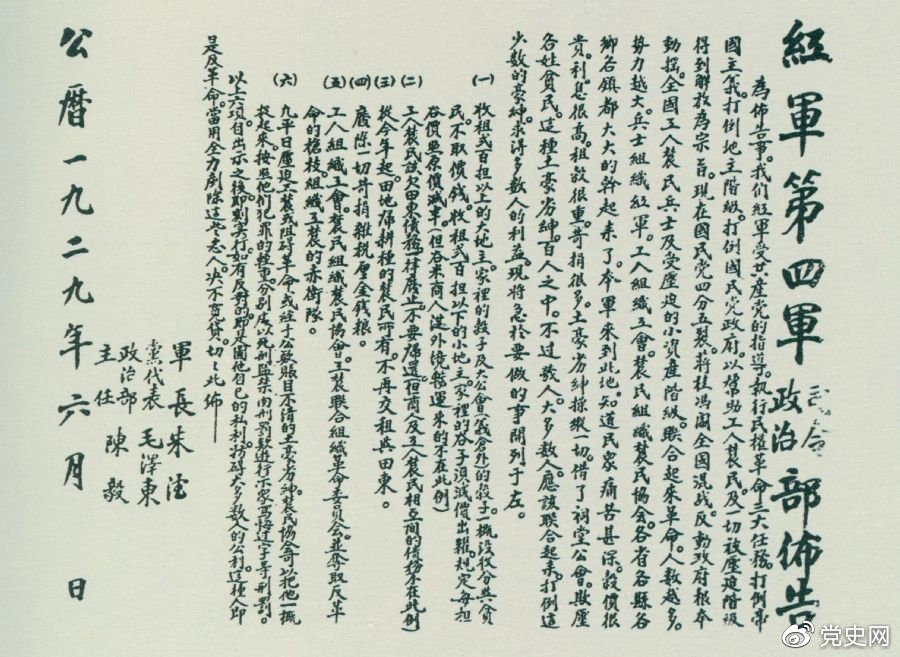 紅軍第四軍司令政治部佈告
為佈告事。我們紅軍受共產党的指導。執行民权革命三大任務。打倒帝
國主義。打倒地主階級。打倒國民党政府。以幫助工人農民。及一切被壓迫階級
得到解放為宗旨。現在國民党四分五裂。蔣桂馮閻全國混战。反動政府根本
動搖。全國工人農民兵士及受壓迫的小資產階級。聯合起來革命。人数越多。
勢力越大。兵士組織紅軍。工人組織工會。農民組織農民協会。各省各縣各
鄉各鎮都大大的幹起來了。本軍來到此地。知道民衆痛苦甚深。穀價很
貴。利息很高。租穀很重。苛捐很多。土豪劣紳操縱一切。借了祠堂公會。欺壓
各姓貧民。這種土豪劣紳。百人之中。不过数人。大多数人。應該联合起来。打倒這
少数的豪紳。求得多数人的利益。現將急於要做的事開列于左。
(一)收租弍百担以上的大地主。家裡的穀子及大公會(義倉外)的穀子一概没收分与贫
民。不取價钱。收租弍百担以下的小地主。家裡的谷子須減價出糶。規定每担
谷價照原價減半。(但谷米商人從外境輸運来的不在此例)
(二)工人農民該欠田東債務。一律廢止。不要歸還。(但商人及工人農民相互間的債務不在此例)
(三)從今年起。田地歸耕種的農民所有。不再交租與田東。
(四)廢除一切苛捐雜税厘金錢粮。
(五)工人組織工會。農民組織農民協會。工農联合組織革命委員会。並奪取反革
命的槍枝組織工農的赤衛隊。
(六)凡平日壓迫工農或阻碍革命。或經手公款賬目不清的土豪劣紳。農民協會可以把他一概
捉起來。按照他们犯罪的輕重。分別處以死刑監禁肉刑罰款遊行示衆写悔过字等刑罰。
以上六項自出示之後。即刻实行。如有反對的。即是圖他自己的私利。妨碍大多数人的公利。這種人即
是反革命。當用全力剷除這些恶人。决不寬贷。切切此佈——
軍長 朱德
黨代表 毛澤東
政治部主任 陳毅
公曆一九二九年六月 日
党史网